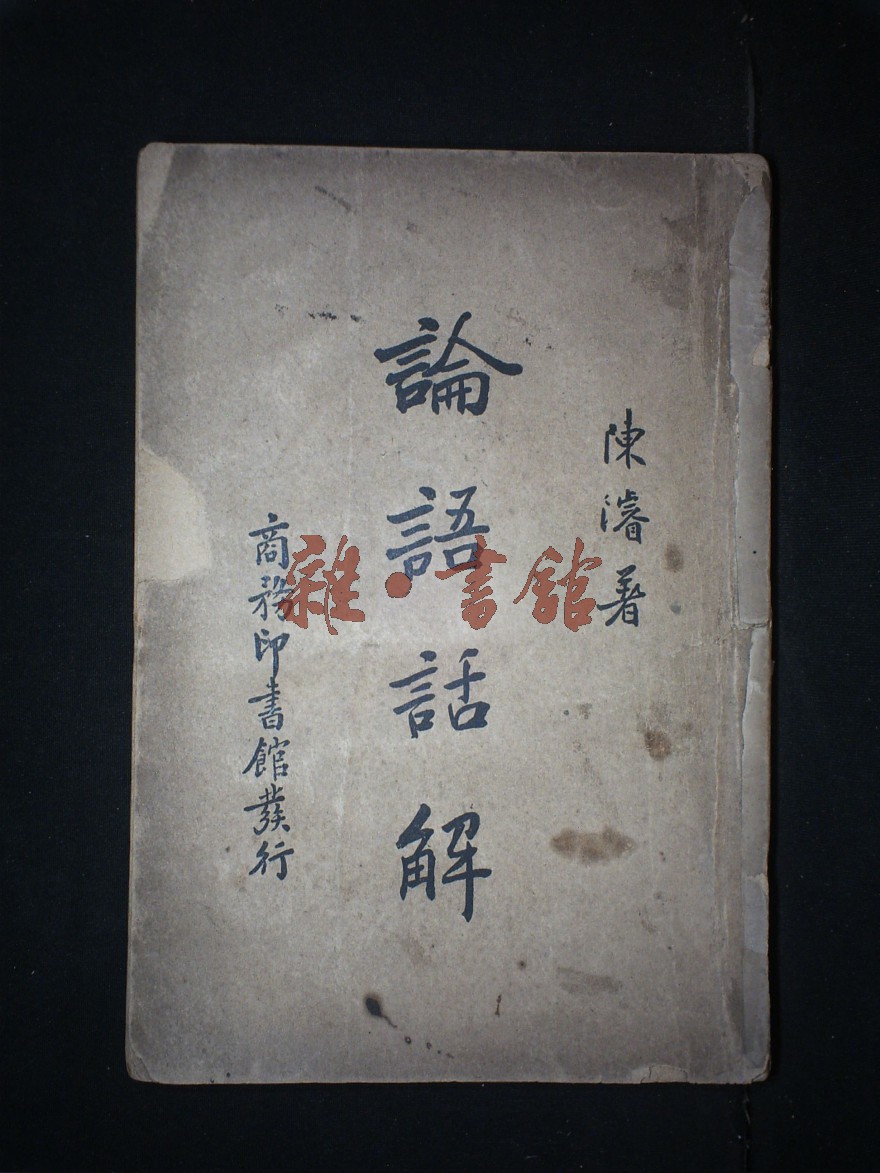 陳濬著
論語話解
商務印書館發行
雜·書館